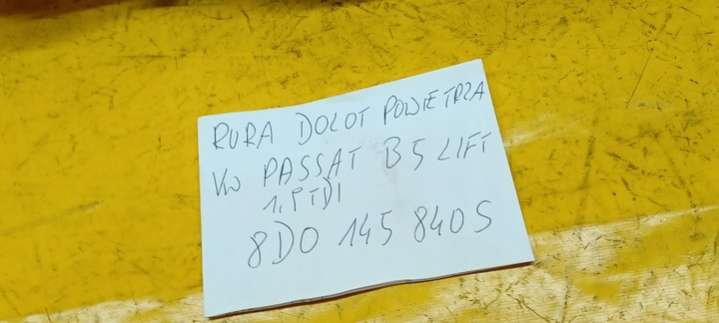 RURA DOLOT POWIETRZA
VW PASSAT B5 LIFT
1.9 TDI
8D0 145 840S